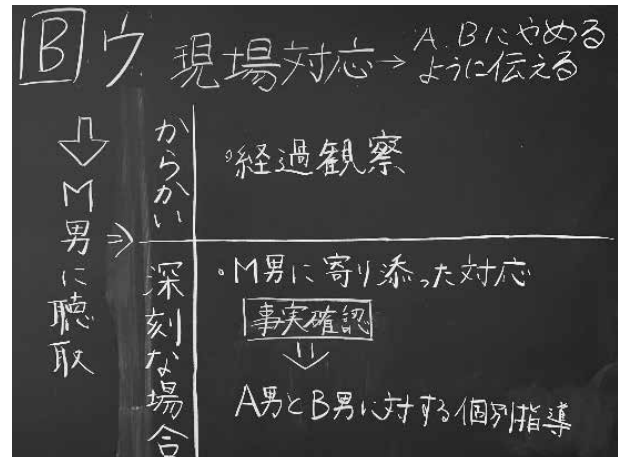 B ウ. 現場対応→A.Bにやめる
ように伝える
⇩
M男に聴取
⇒
からかい
・経過観察
深刻な場合
・M男に寄り添った対応
事実確認
⇓
A男とB男に対する個別指導